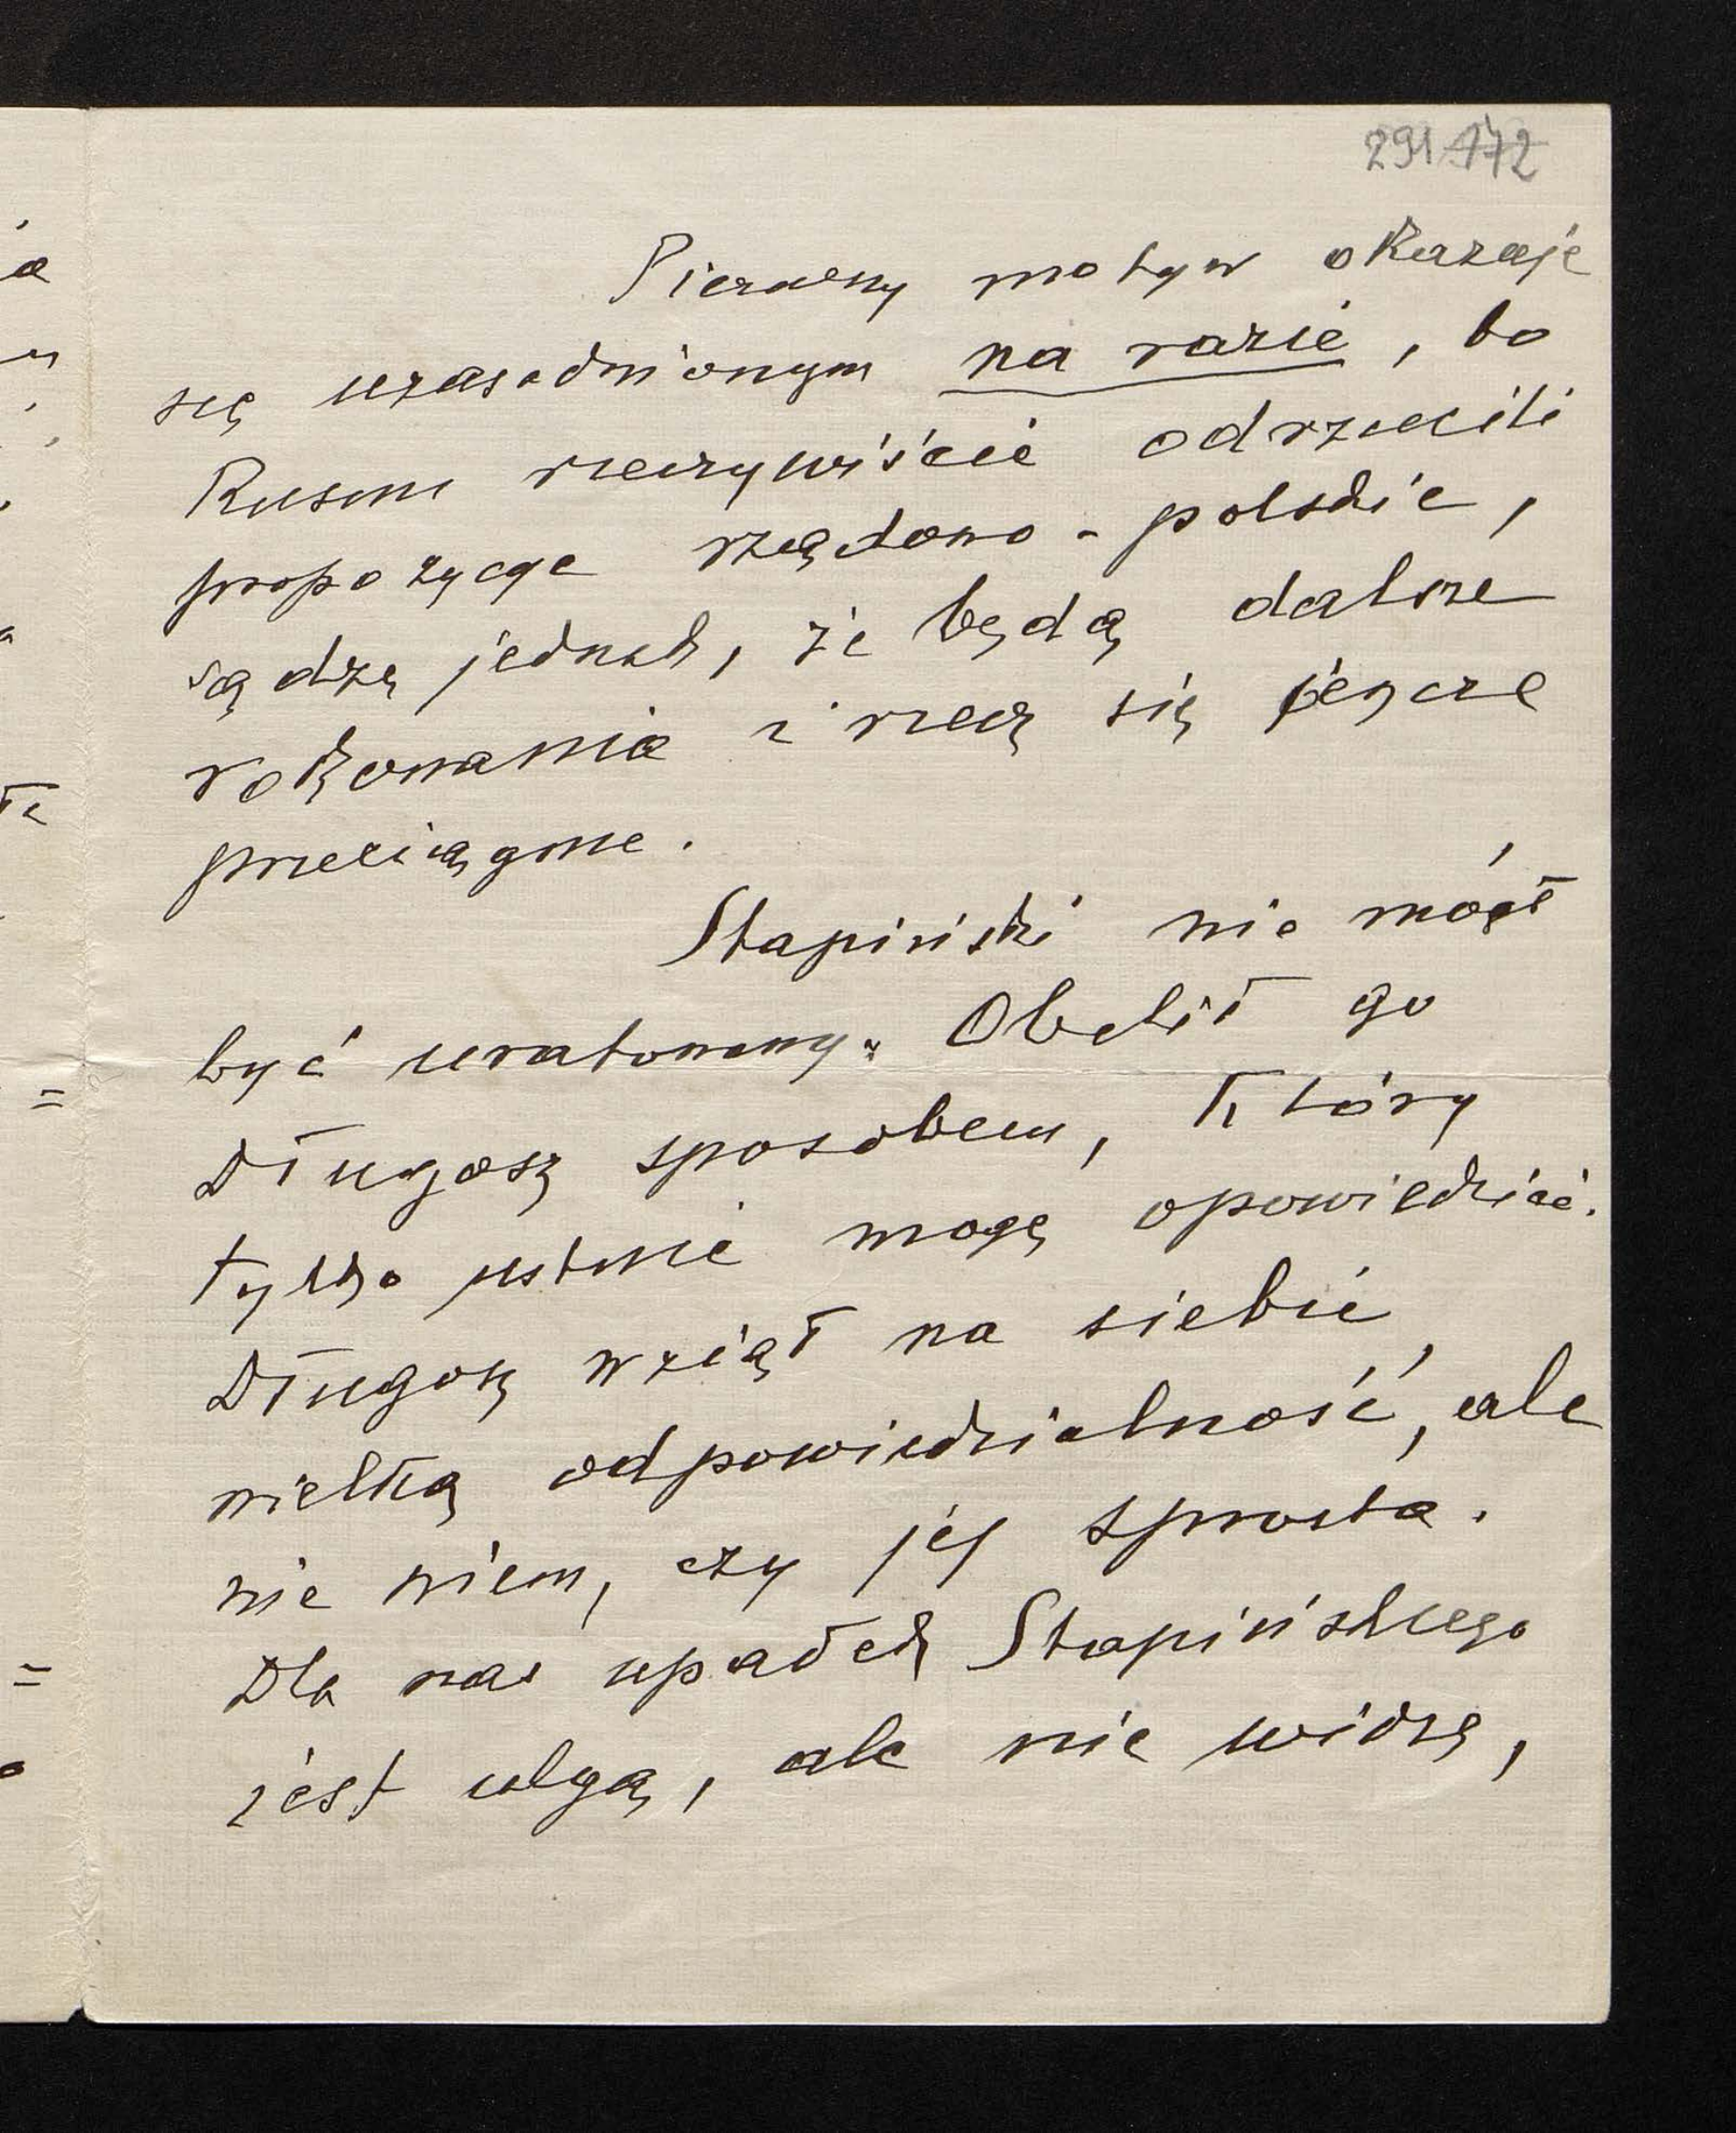 291 172
Pierwszy motyw okazuje
się uzasadnionym na razie, bo
Rusini rzeczywiście odrzucili
propozycye rządowo-polskie,
sądzę jednak, że będą dalsze
rokowania i rzecz się jeszcze
przeciągnie.
Stapiński nie mógł
być uratowany. Obalił go
Długosz sposobem, który
tylko ustnie mogę opowiedzieć.
Długosz wziął na siebie
wielką odpowiedzialność, ale
nie wiem, czy jej sprosta.
Dla nas upadek Stapińskiego
jest ulgą, ale nie widzę,